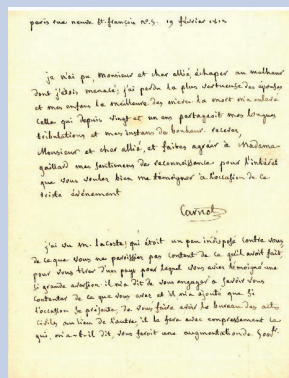 paris rue neuve St. françois n° 5. 19 février 1813
je n'ai pu, monsieur et cher allié, échaper au malheur
dont j'étois menacé; j'ai perdu la plus vertueuse des épouses
et mes enfans la meilleure des mères. la mort m'a enlevé
celle qui depuis vingt et un ans partageoit mes longues
tribulations et mes instans de bonheur. recevez,
Monsieur et cher allié, et faites agréer à Madame
gaillard mes sentimens de reconnoissance pour l'intérêt
que vous voulez bien me témoigner à l'occasion de ce
triste événement
Carnot
j'ai vu m. lacoste; qui étoit un peu indisposé contre vous
de ce que vous ne paroissiez pas content de ce qu'il avoit fait
pour vous tirer d'un pays pour lequel vous aviez témoigné une
si grande aversion: il m'a dit de vous engager à savoir vous
contenter de ce que vous avez et il m'a ajouté que si
l'occasion se présente de vous faire avoir le bureau des actes
civils au lieu de l'autre, il le fera avec empressement ce
qui, m'a-t-il dit, vous feroit une augmentation de